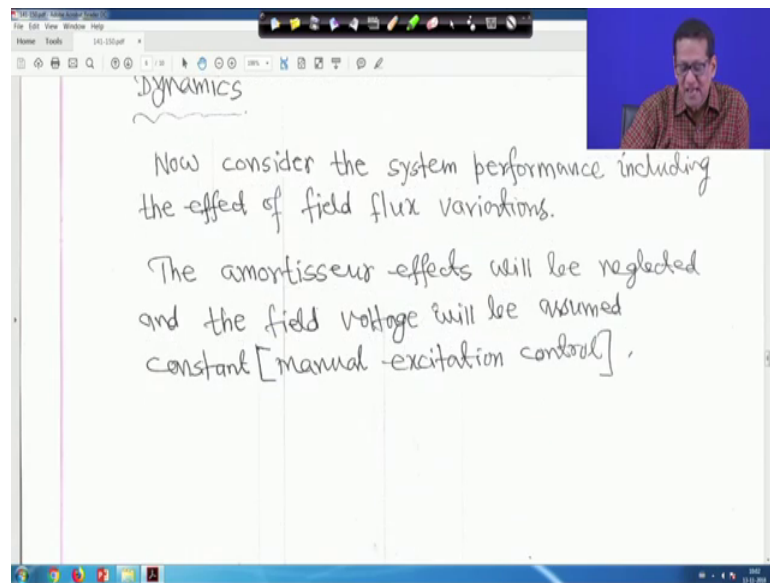 141-150.pdf - Adobe Acrobat Reader DC
File Edit View Window Help
Home Tools 141-150.pdf
Dynamics
Now consider the system performance including
the effect of field flux variations.
The amortisseur effects will be neglected
and the field voltage will be assumed
constant [manual excitation control].